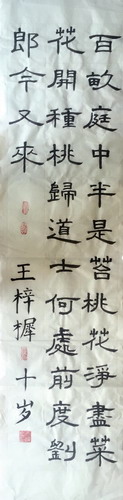 百畝庭中半是苔桃花淨盡菜
花開種桃歸道士何處前度劉
郎今又來
王梓墀十岁